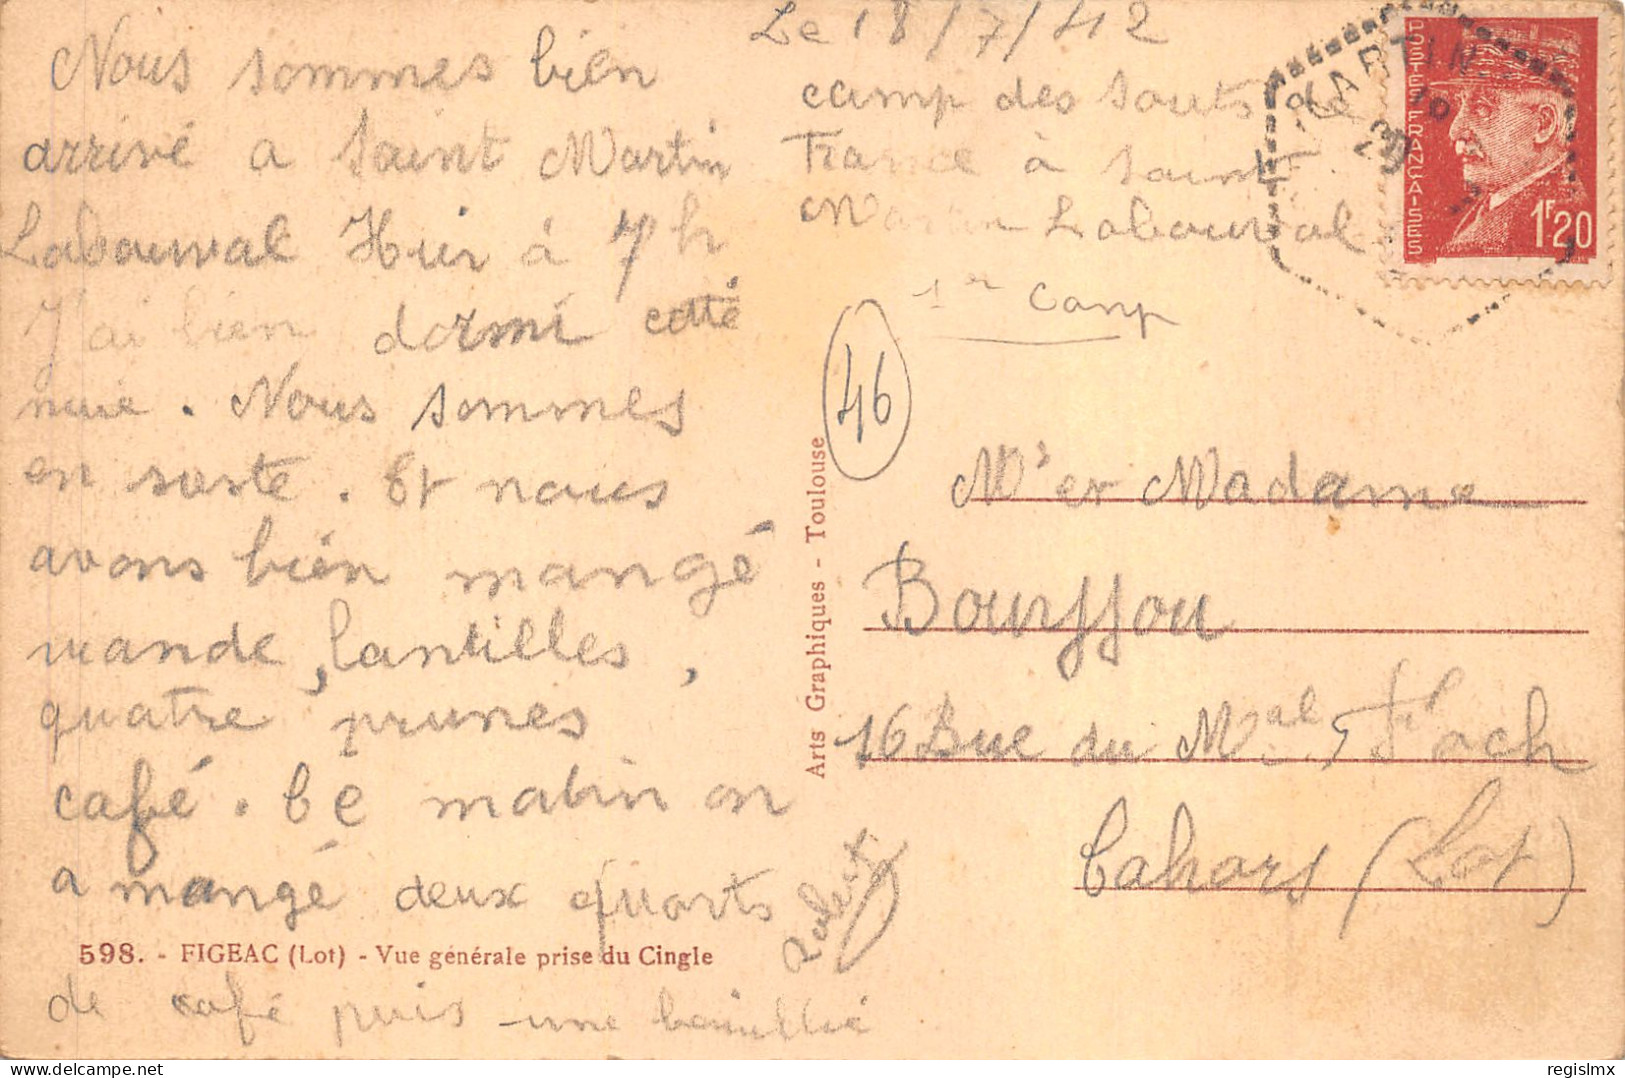 Nous sommes bien
arrivé a Saint Martin
Labouval Hier à 7 h
J'ai bien dormi cette
nuie. Nous sommes
en sieste. Et nous
avons bien mangé
viande, lantilles,
quatre prunes
café. Ce matin on
a mangé deux quarts
de café puis une
Le 18/7/42
camp des
France à Saint
Martin Labouval
1er Camp
46
Mr et Madame
Bouyssou
16 Rue du Mal Foch
Cahors (Lot)
Arts Graphiques - Toulouse
598. - FIGEAC (Lot) - Vue générale prise du Cingle
POSTES FRANÇAISES
1F20
MARTIN
regislmx